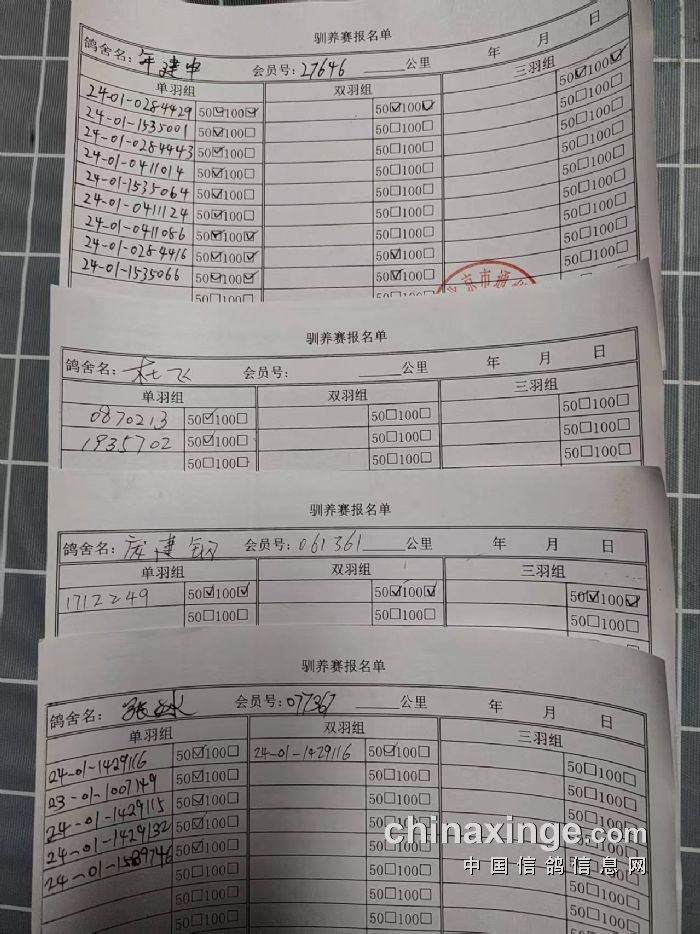 驯养赛报名单
鸽舍名: 年建申 会员号: 27646 公里 年 月 日
单羽组 双羽组 三羽组
24-01-0284429 50☑100☑ 50☑100☑ 50☑100☑
24-01-1535001 50☑100☐ 50☐100☐ 50☐100☐
24-01-0284443 50☑100☐ 50☐100☐ 50☐100☐
24-01-0411014 50☑100☐ 50☐100☐ 50☐100☐
24-01-1535064 50☑100☐ 50☐100☐ 50☐100☐
24-01-0411124 50☑100☐ 50☐100☐ 50☐100☐
24-01-0411086 50☑100☑ 50☐100☐ 50☐100☐
24-01-0284416 50☑100☑ 50☑100☐ 50☐100☐
24-01-1535066 50☑100☑ 50☑100☐ 50☐100☐
50☐100☐ 50☐100☐
京市
驯养赛报名单
鸽舍名: 杜飞 会员号: 公里 年 月 日
单羽组 双羽组 三羽组
0870213 50☑100☐ 50☐100☐ 50☐100☐
1935702 50☑100☐ 50☐100☐ 50☐100☐
50☐100☐ 50☐100☐ 50☐100☐
驯养赛报名单
鸽舍名: 庞建钢 会员号: 061361 公里 年 月 日
单羽组 双羽组 三羽组
1712249 50☑100☑ 50☑100☑ 50☑100☑
50☐100☐ 50☐100☐ 50☐100☐
驯养赛报名单
鸽舍名: 张冰 会员号: 077367 公里 年 月 日
单羽组 双羽组 三羽组
24-01-1429116 50☑100☐ 24-01-1429116 50☑100☐ 50☐100☐
23-01-1007149 50☑100☐ 50☐100☐ 50☐100☐
24-01-1429115 50☑100☐ 50☐100☐ 50☐100☐
24-01-1429132 50☑100☐ 50☐100☐ 50☐100☐
24-01-1589746 50☑100☐ 50☐100☐ 50☐100☐
50☐100☐ 50☐100☐ 50☐100☐
50☐100☐ 50☐100☐ 50☐100☐
50☐100☐ 50☐100☐
chinaxinge.com
中国信鸽信息网